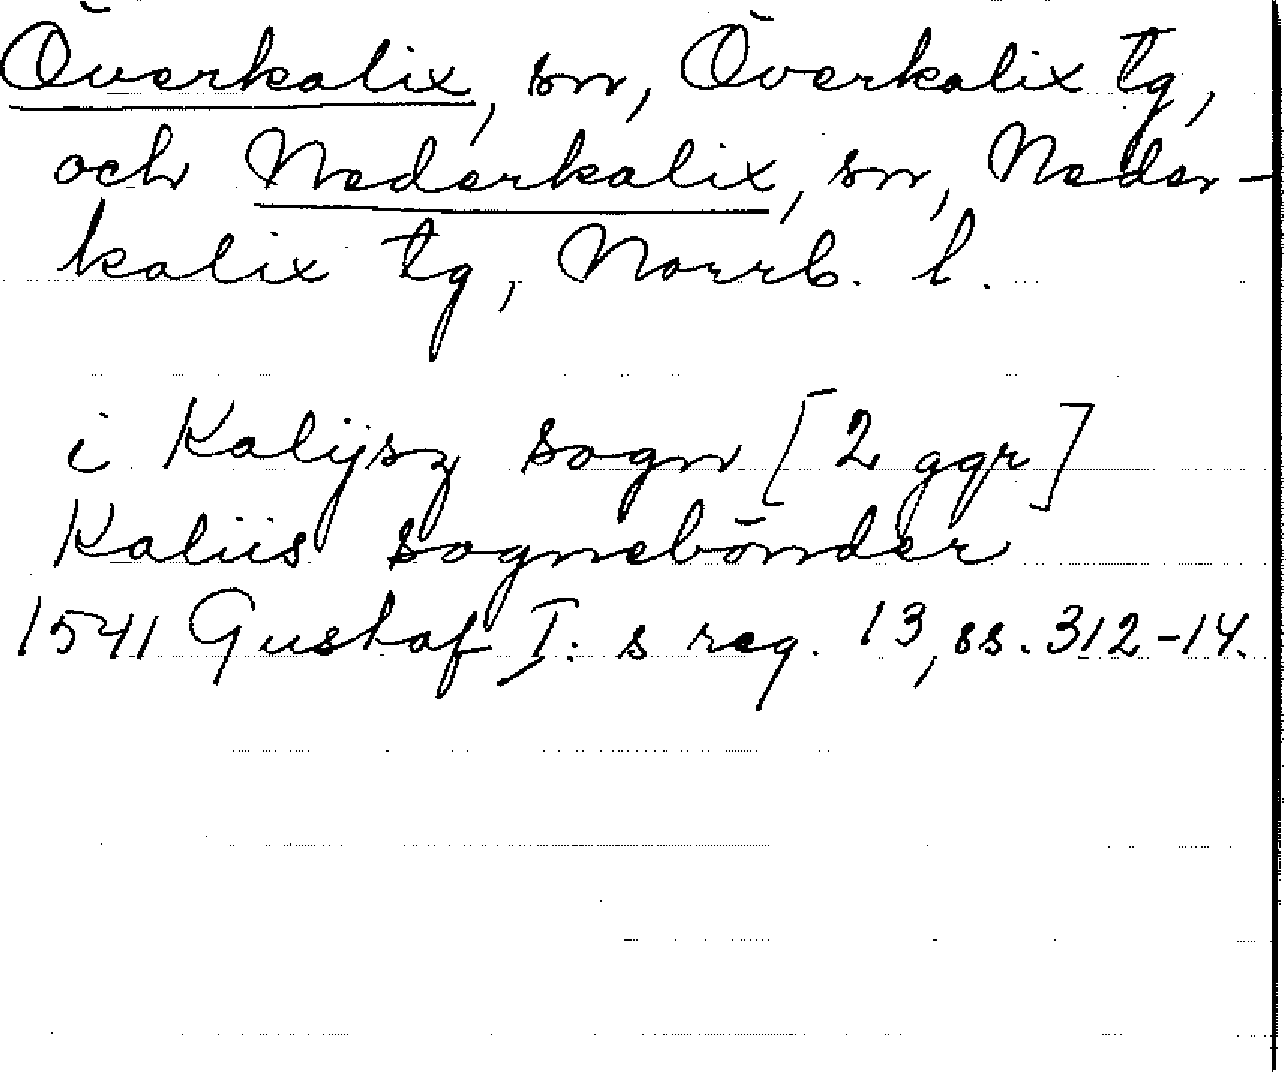 Överkalix, sn, Överkalix tg,
och Nederkalix, sn, Neder-
kalix tg, Norrb. l.
i Kalijsz sogn [2 ggr]
Kaliis sognebönder
1541 Gustaf I:s reg. 13, ss. 312-14.